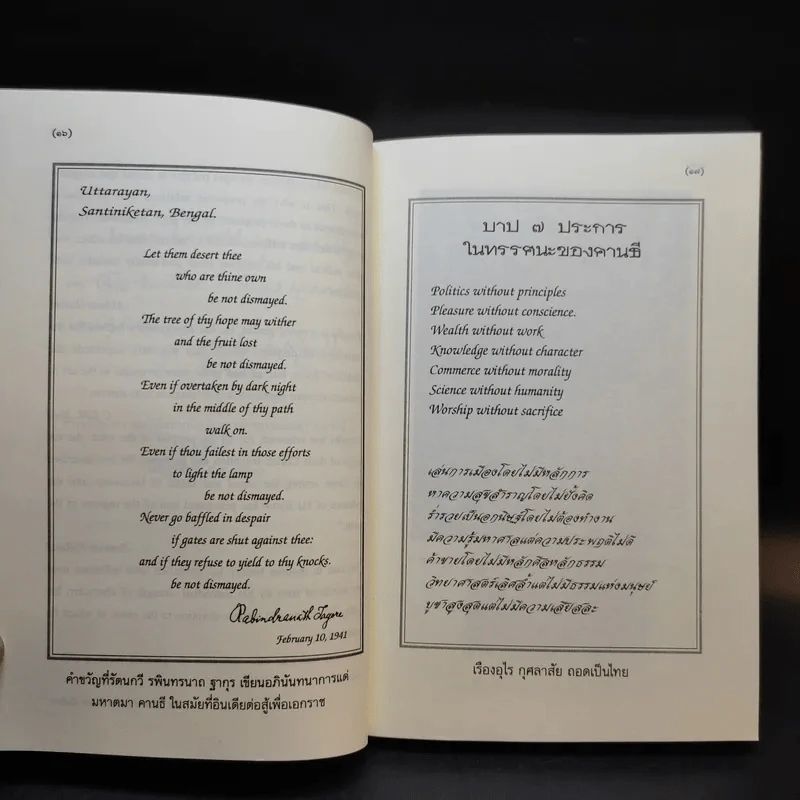 (๑๖)
Uttarayan,
Santiniketan, Bengal.
Let them desert thee
who are thine own
be not dismayed.
The tree of thy hope may wither
and the fruit lost
be not dismayed.
Even if overtaken by dark night
in the middle of thy path
walk on.
Even if thou failest in those efforts
to light the lamp
be not dismayed.
Never go baffled in despair
if gates are shut against thee:
and if they refuse to yield to thy knocks.
be not dismayed.
Rabindranath Tagore
February 10, 1941
คำขวัญที่รัตนกวี รพินทรนาถ ฐากุร เขียนอภินันทนาการแด่
มหาตมา คานธี ในสมัยที่อินเดียต่อสู้เพื่อเอกราช
(๑๗)
บาป ๗ ประการ
ในทรรศนะของคานธี
Politics without principles
Pleasure without conscience.
Wealth without work
Knowledge without character
Commerce without morality
Science without humanity
Worship without sacrifice
เล่นการเมืองโดยไม่มีหลักการ
หาความสุขสำราญโดยไม่ยั้งคิด
ร่ำรวยเป็นอกนิษฐ์โดยไม่ต้องทำงาน
มีความรู้มหาศาลแต่ความประพฤติไม่ดี
ค้าขายโดยไม่มีหลักศีลหลักธรรม
วิทยาศาสตร์เลิศล้ำแต่ไม่มีธรรมแห่งมนุษย์
บูชาสูงสุดแต่ไม่มีความเสียสละ
เรืองอุไร กุศลาสัย ถอดเป็นไทย